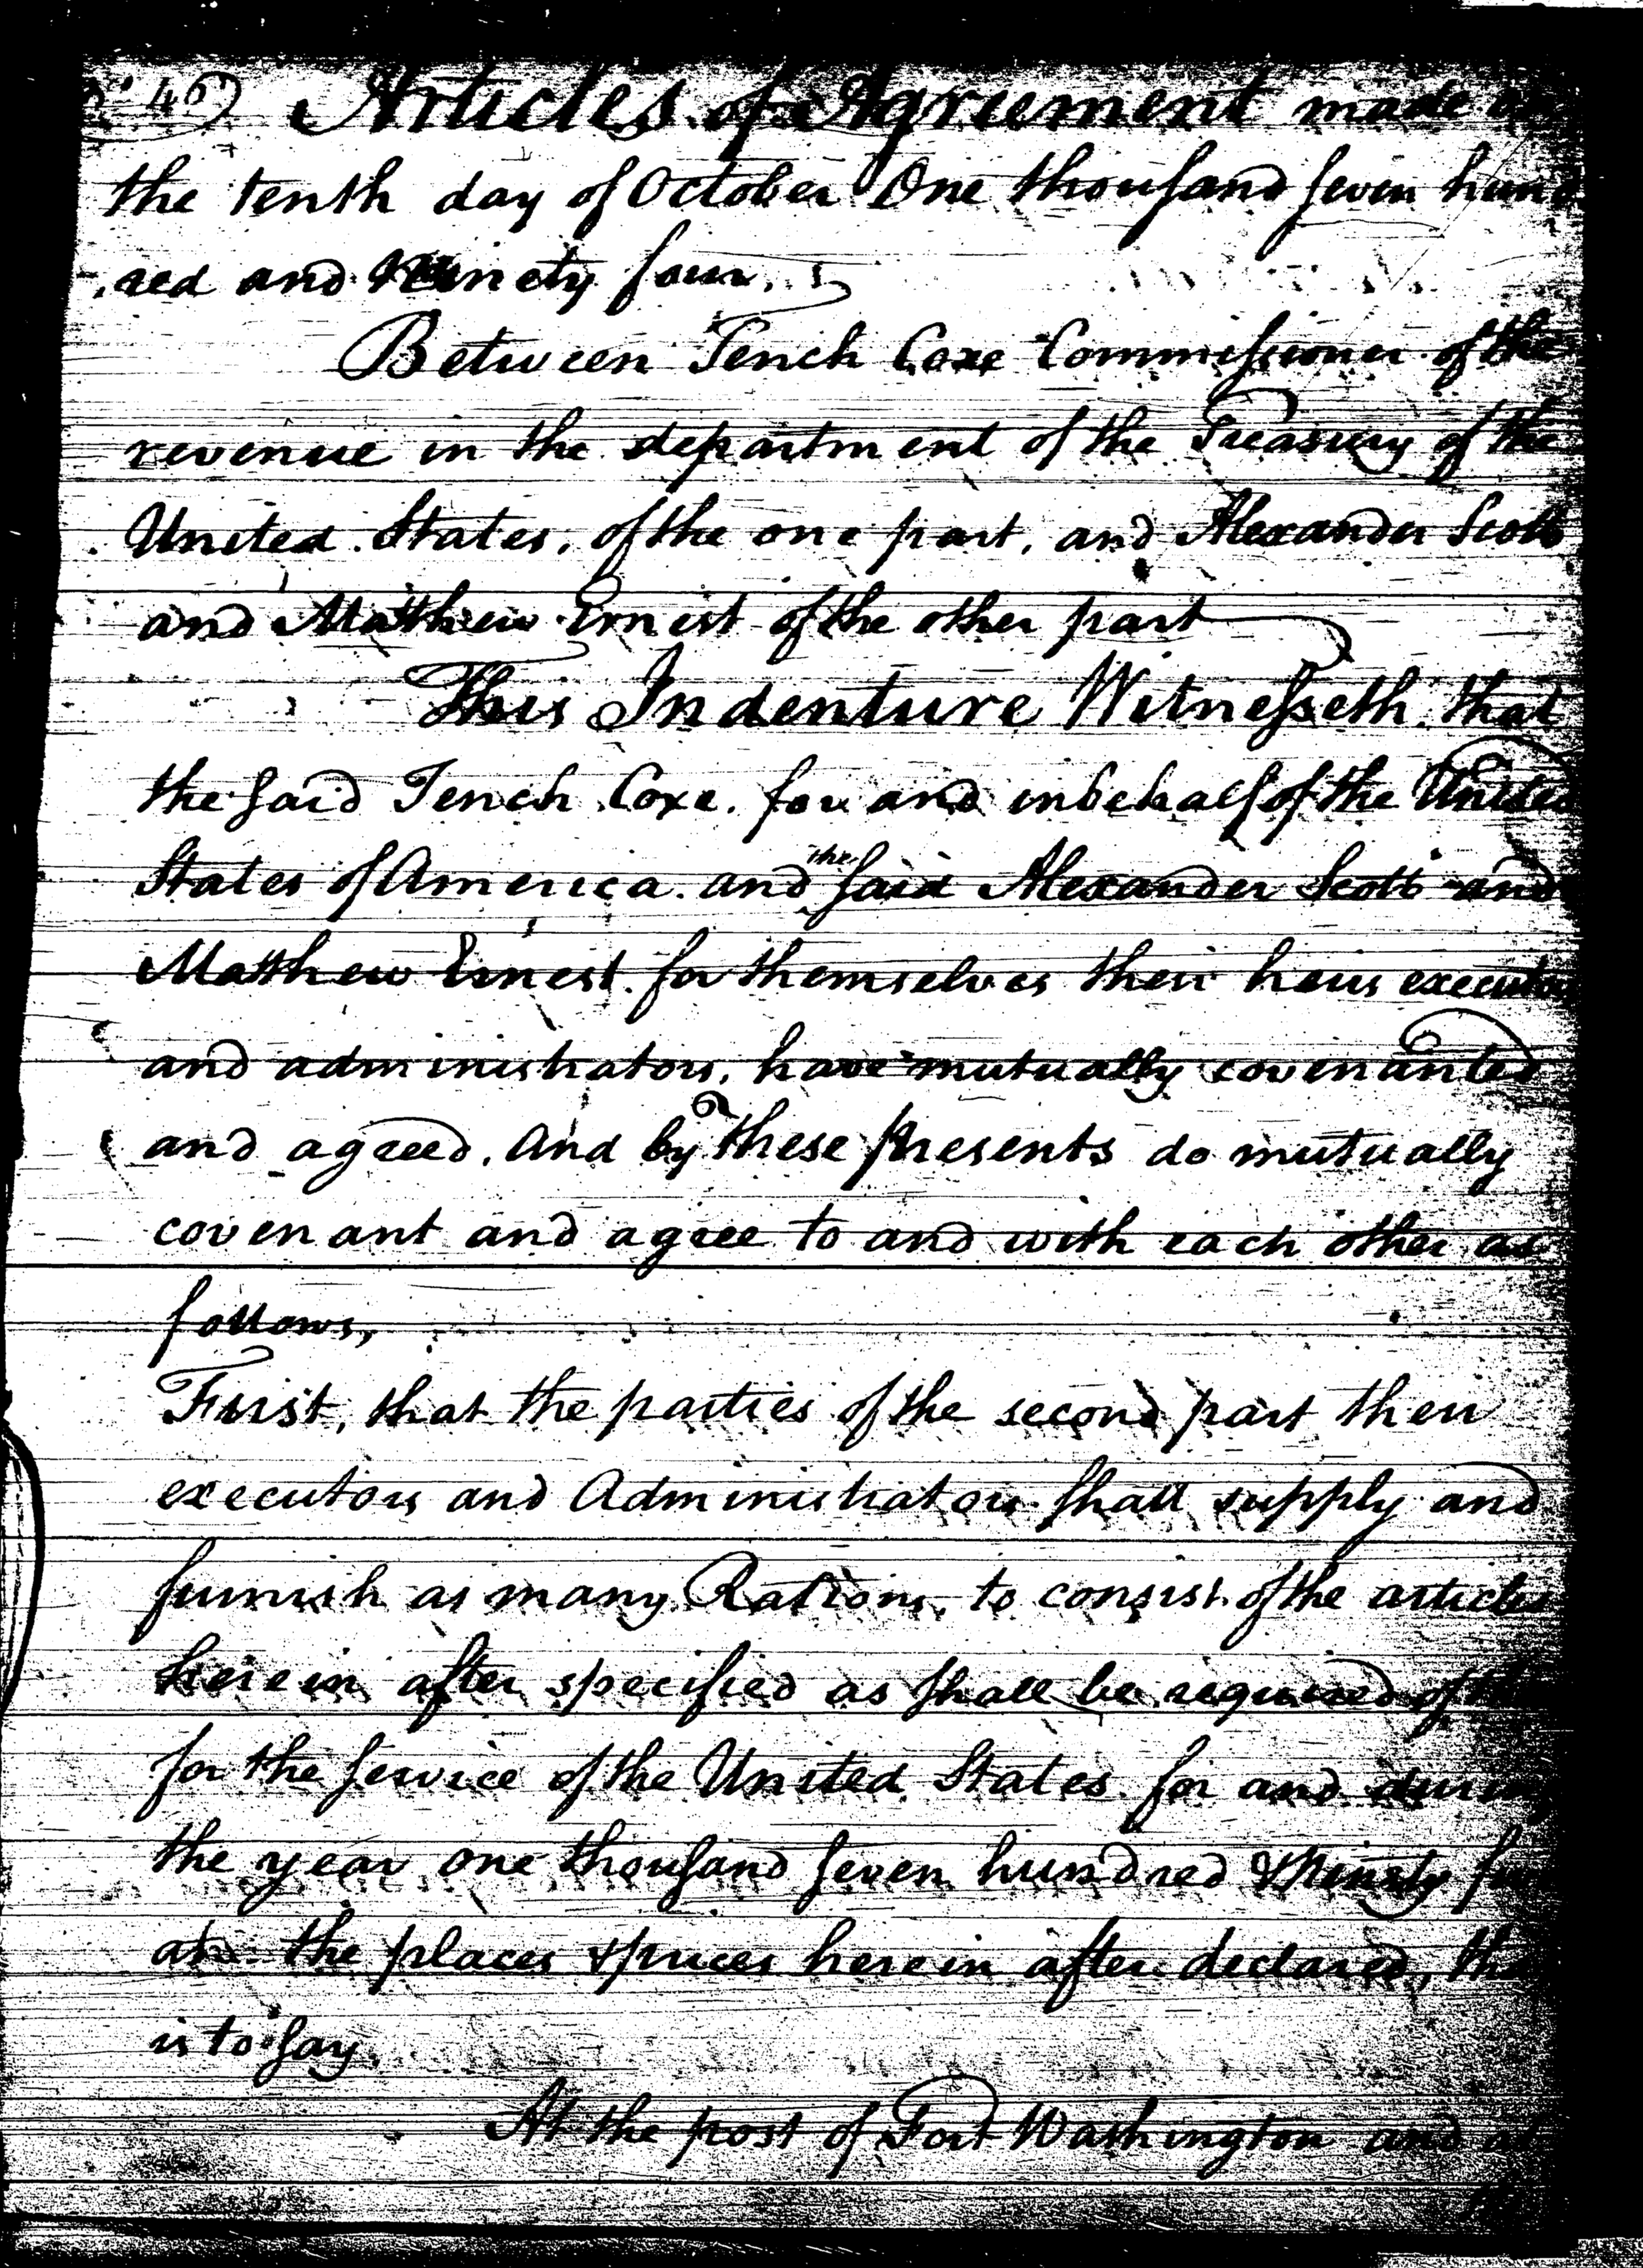 No 46) Articles of Agreement made on
the tenth day of October One thousand seven hund
,red and Ninety four.
Between Tench Coxe Commissioner of the
revenue in the department of the Treasury of the
United States, of the one part, and Alexander Scott
and Matthew Ernest of the other part
This Indenture Witnesseth that
the said Tench Coxe. for and in behalf of the United
States of America. and the said Alexander Scott and
Matthew Ernest. for themselves their heirs executors
and administrators, have mutually covenanted
and agreed. And by these presents do mutually
covenant and agree to and with each other as
follows,
First, that the parties of the second part their
executors and Administrators shall supply and
furnish as many Rations, to consist of the articles
herein after specified as shall be required of
for the service of the United States for and during
the year one thousand seven hundred & Ninety
at the places & prices herein after declared, that
is to say.
At the post of Fort Washington and at